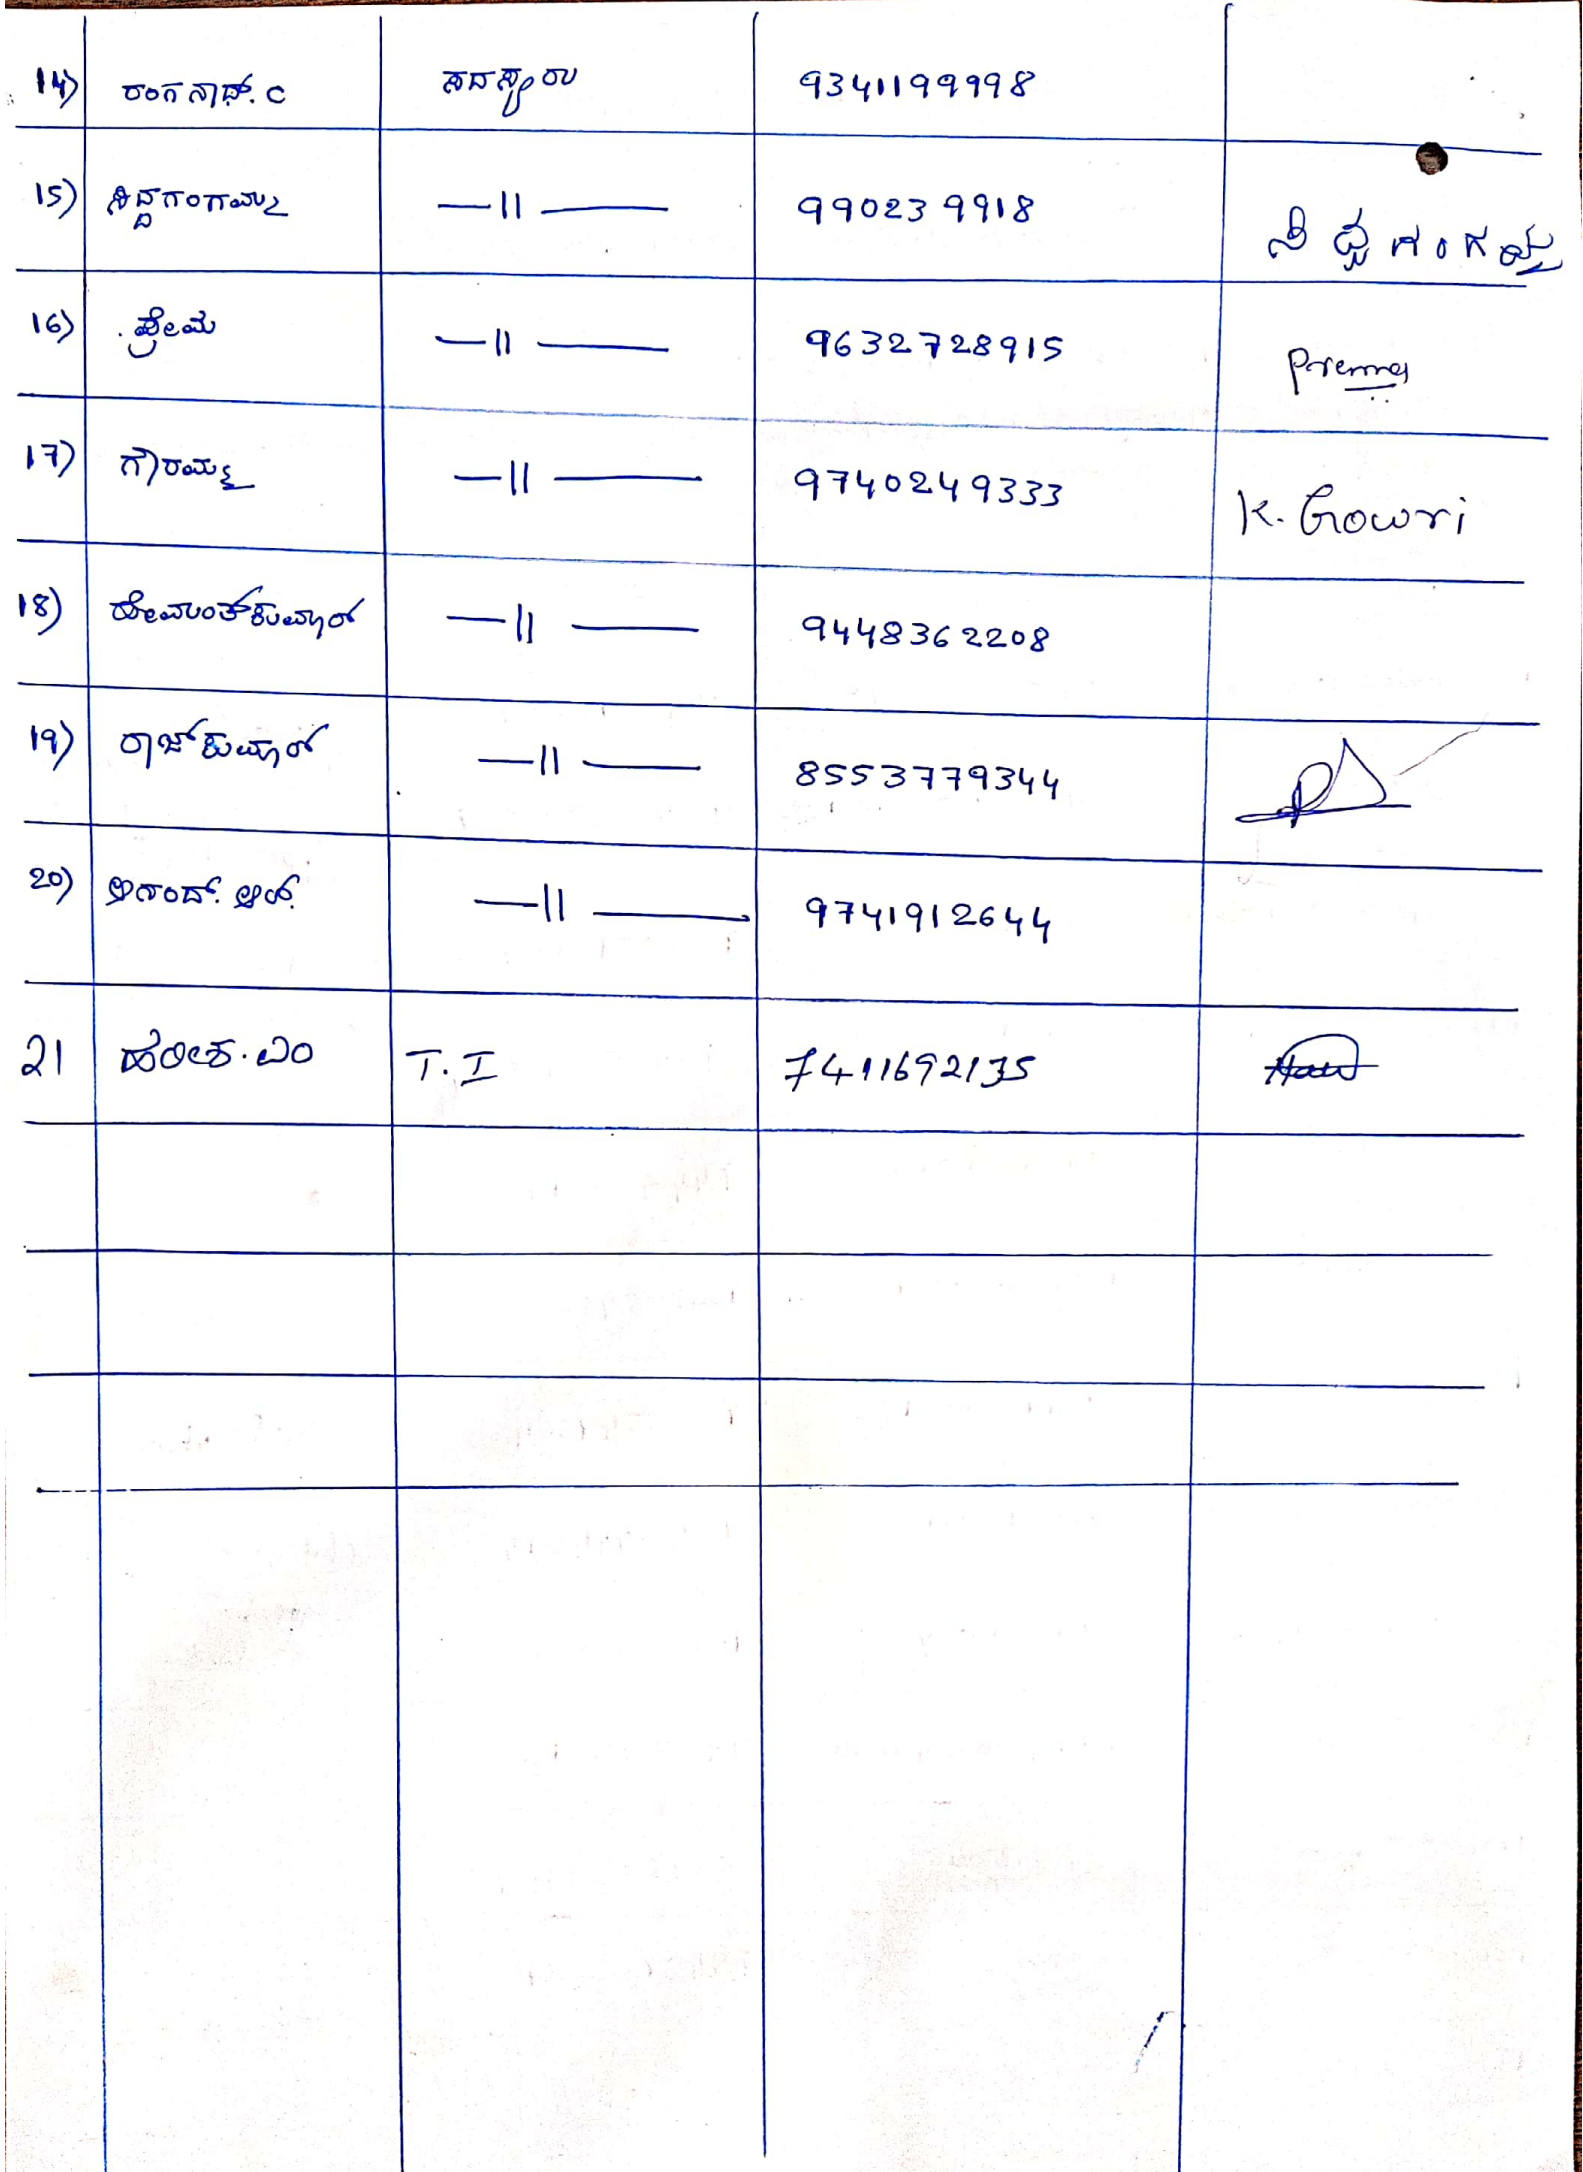 14) ರಂಗನಾಥ್. C ಸದಸ್ಯರು 9341199998
15) ಸಿದ್ದಗಂಗಮ್ಮ —11— 990239918 ಸಿದ್ಧಗಂಗಮ್ಮ
16) ಪ್ರೇಮ —11— 9632728915 Prema
17) ಗೌರಮ್ಮ —11— 9740249333 K. Gowri
18) ಹೇಮಂತ್‌ಕುಮಾರ್ —11— 9448362208
19) ರಾಜ್‌ಕುಮಾರ್ —11— 8553779344
20) ಆನಂದ್. ಆರ್. —11— 9741912644
21 ಹರೀಶ. ಎಂ T. I 7411692135